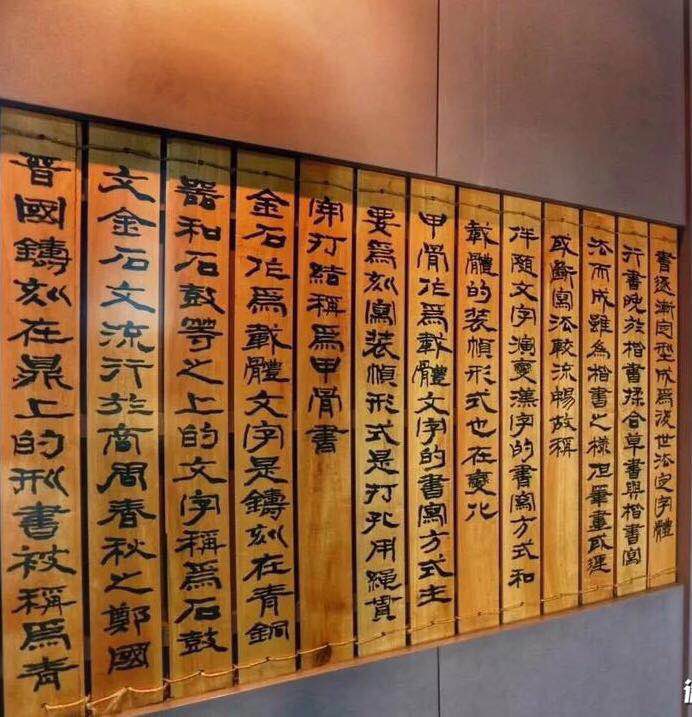 書逐漸定型成爲後世法定字體
行書晚於楷書揉合草書與楷書寫
法而成雖為楷書之樣但筆畫或連
或斷寫法較流暢故稱
伴隨文字演變漢字的書寫方式和
載體的裝幀形式也在變化
甲骨作爲載體文字的書寫方式主
要爲刻寫裝幀形式是打孔用繩貫
穿打結稱爲甲骨書
金石作爲載體文字是鑄刻在青銅
器和石鼓等之上的文字稱爲石鼓
文金石文流行於商周春秋之鄭國
晉國鑄刻在鼎上的刑書被稱爲青